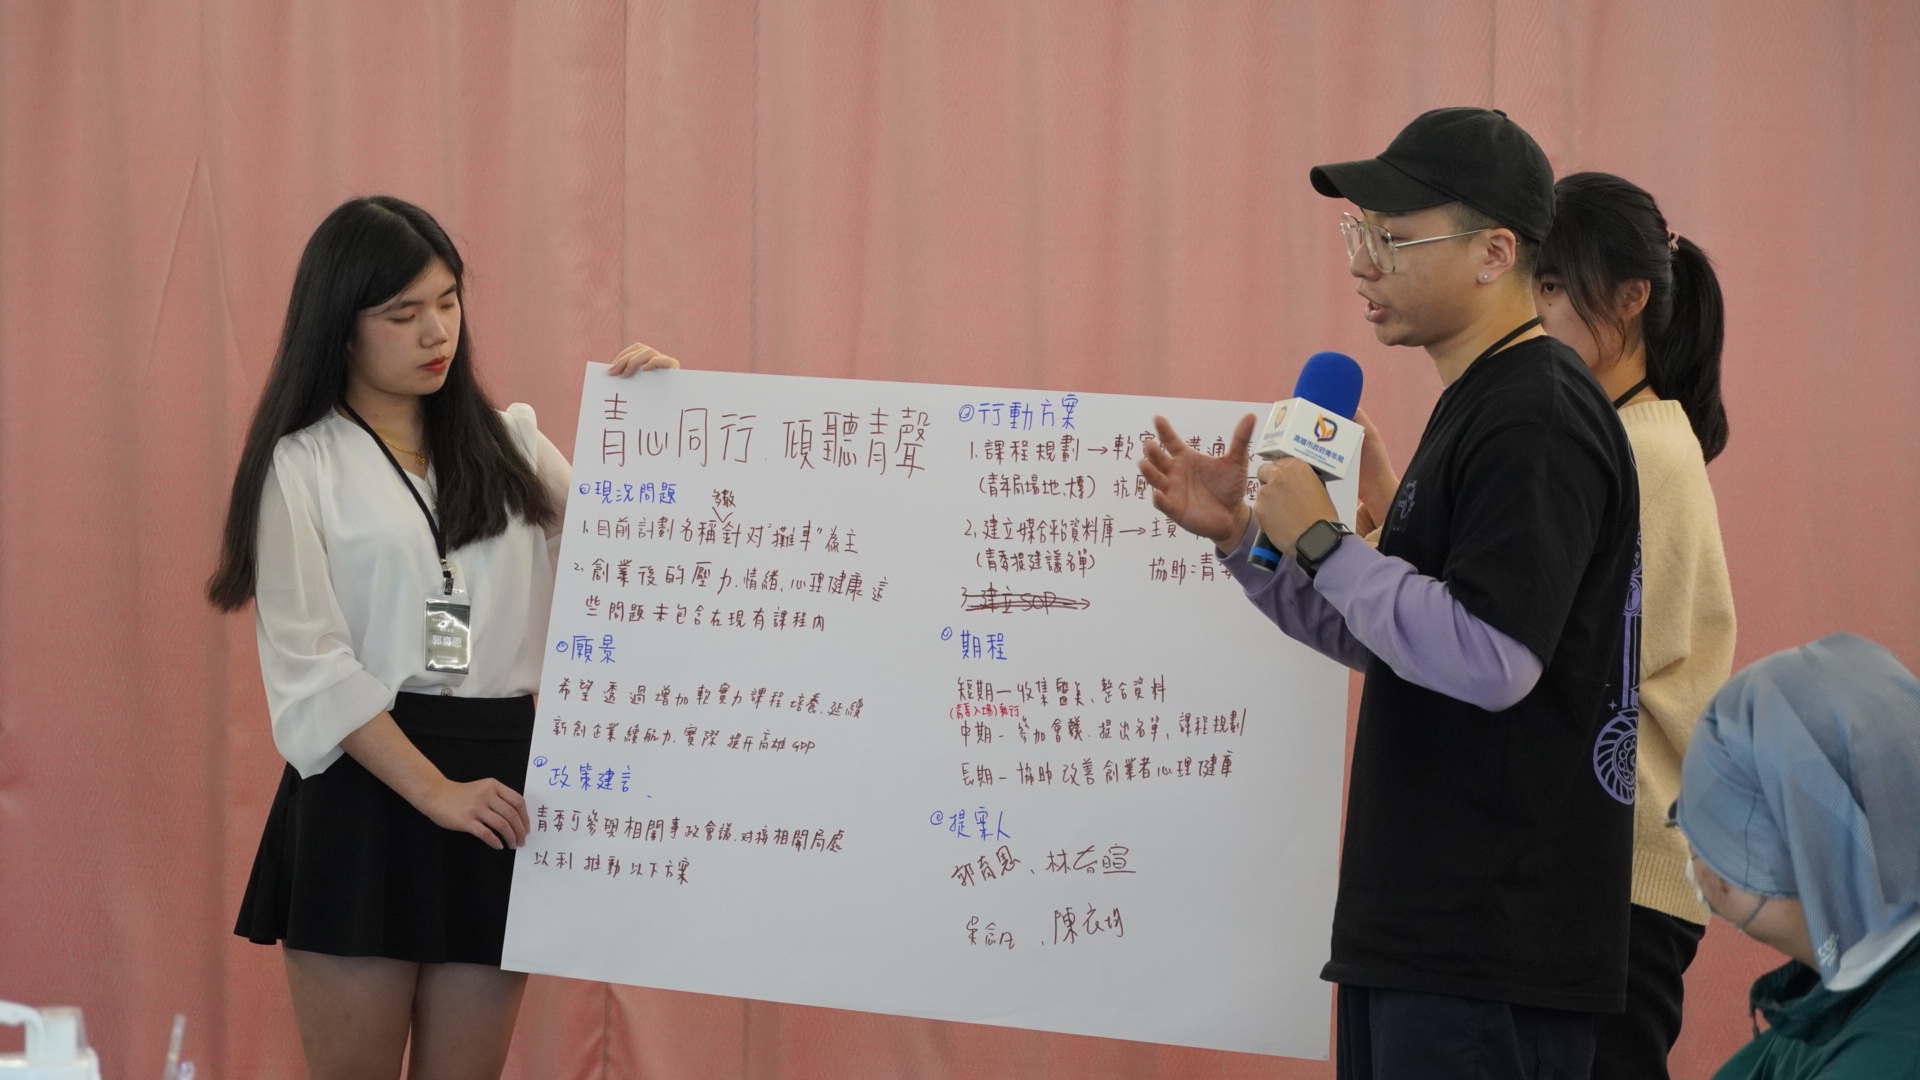 青心同行、傾聽青聲
現況問題
多數
1. 目前計劃名稱針對"攤車"為主
2. 創業後的壓力、情緒、心理健康這
些問題未包含在現有課程內
願景
希望透過增加軟實力課程培養、延續
新創企業續航力、實際提升高雄GDP
政策建言、
青委可參與相關事政會議、对接相關局處
以利推動以下方案
行動方案
1. 課程規劃→軟實
(青年局場地、) 抗壓
2. 建立媒合平台資料庫→主責
(青委提建議名單) 協助:青委
3. 建立SOP→
期程
短期—收集匯集、整合資料
(青委入場)執行
中期—參加會議、提出名單、課程規劃
長期—協助改善創業者心理健康
提案人
郭育恩、林育暄
吳念、陳衣
高雄市政府青年局
郭育恩